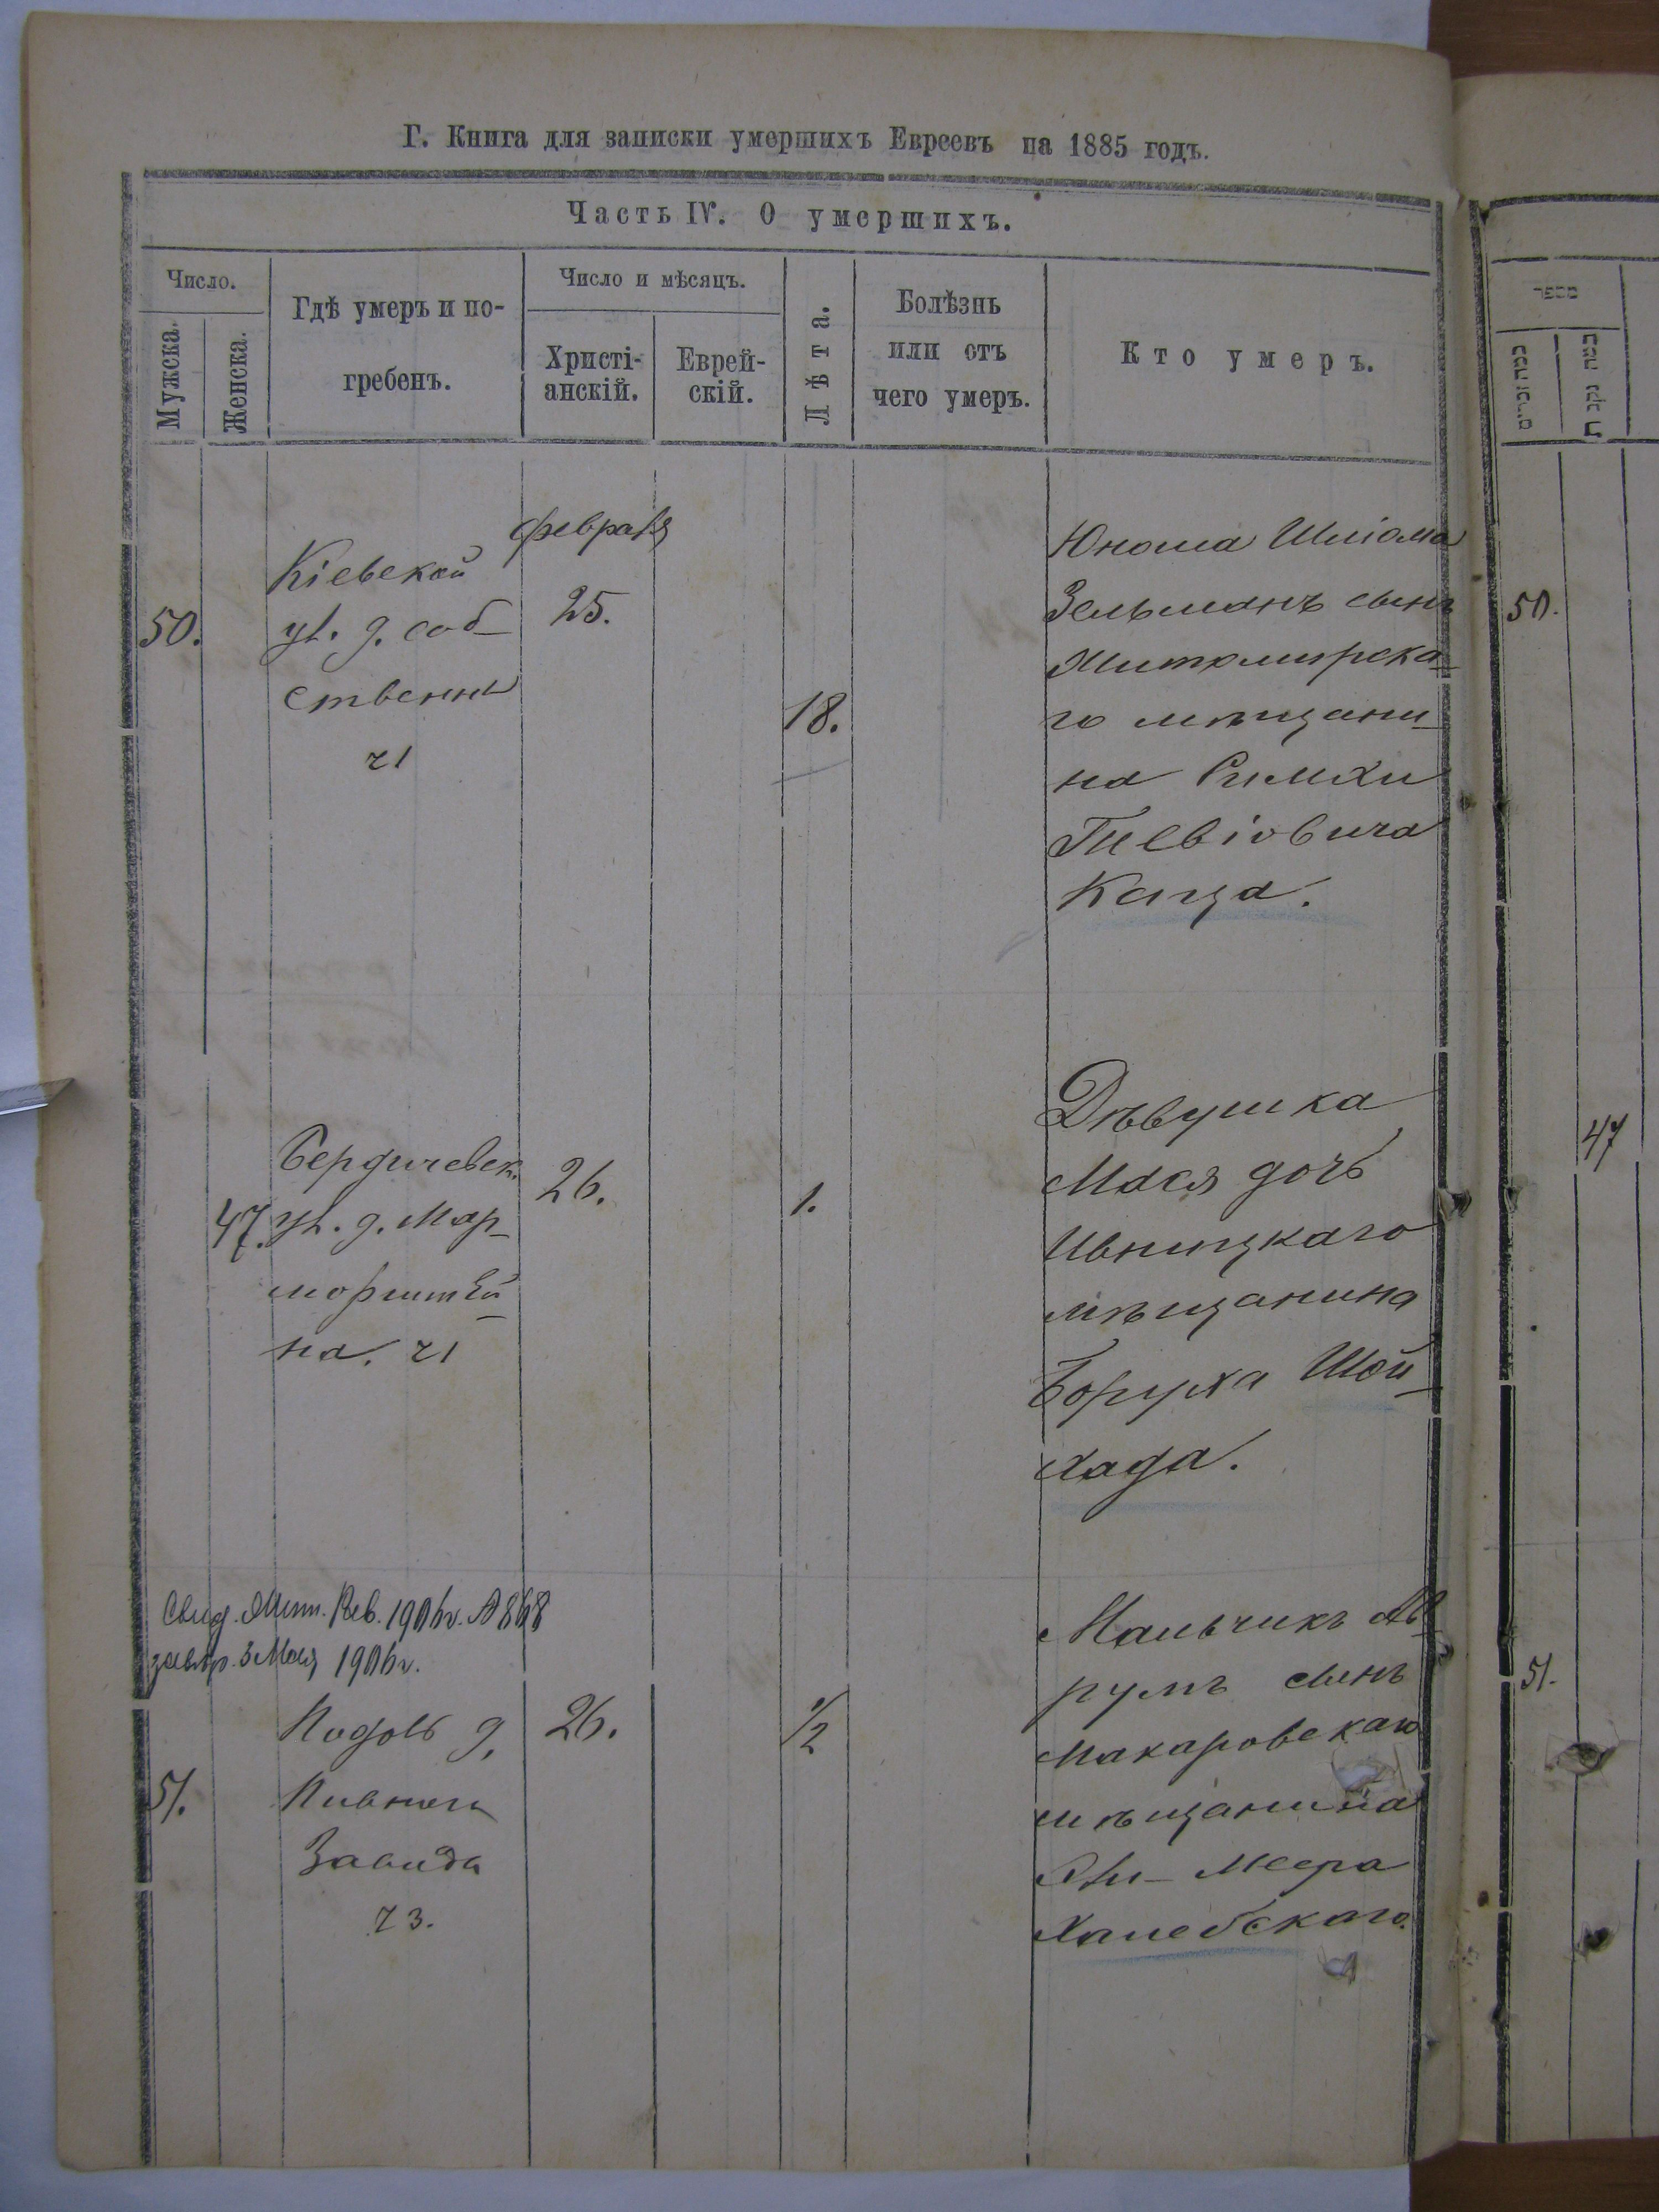 Г. Книга для записки умершихъ Евреевъ на 1885 годъ.
Часть IV. О умершихъ.
Число.
Мужска.
Женска.
Гдѣ умеръ и по-
гребенъ.
Число и мѣсяцъ.
Христі-
анскій.
Еврей-
скій.
Лѣта.
Болѣзнь
или отъ
чего умеръ.
Кто умеръ.
50.
Кіевской
ул. д. соб-
ственны
ч 1
февраля
25.
18.
Юноша Шліома
Зельманъ сынъ
Житомирска-
го мѣщани-
на Симхи
Тевіовича
Каца.
50.
47.
Бердичевск.
ул. д. Мар-
морштей-
на. ч 1
26.
1.
Дѣвушка
Мася дочь
Ивницкаго
мѣщанина
Боруха Шой-
хада.
47
Свид. Жит. Рав. 1906 г. № 868
3 Мая 1906 г.
51.
Подолъ д.
Пивного
Завода
ч 3.
26.
1/2
Мальчикъ Ав-
румъ сынъ
Макаровскаго
мѣщанина
Меера
Халебскаго.
51.